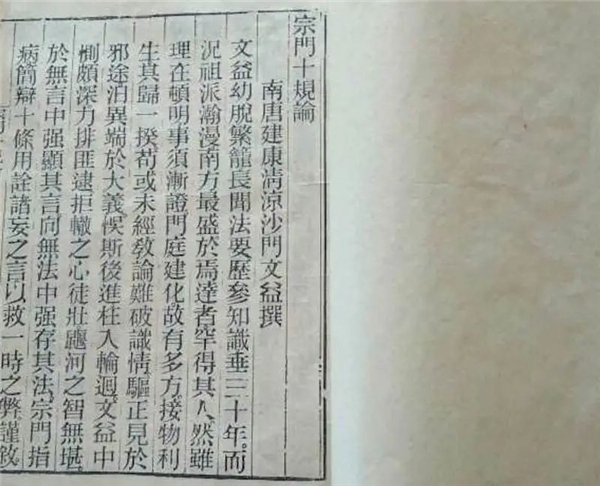 宗門十規論
南唐建康清涼沙門文益撰
文益幼脫繁籠長聞法要歷參知識垂三十年。而
況祖派瀚漫南方最盛於焉達者罕得其人。然雖
理在頓明事須漸證門庭建化故有多方。接物利
生其歸一揆苟或未經教論難破識情。驅正見於
邪途汨異端於大義悞斯後進枉入輪迴。文益中
惻頗深力排匪逮拒轍之心徒壯鼴河之智無堪。
於無言中强顯其言向無法中强存其法。宗門指
病簡辯十條用詮諸妄之言以救一時之弊謹敘。